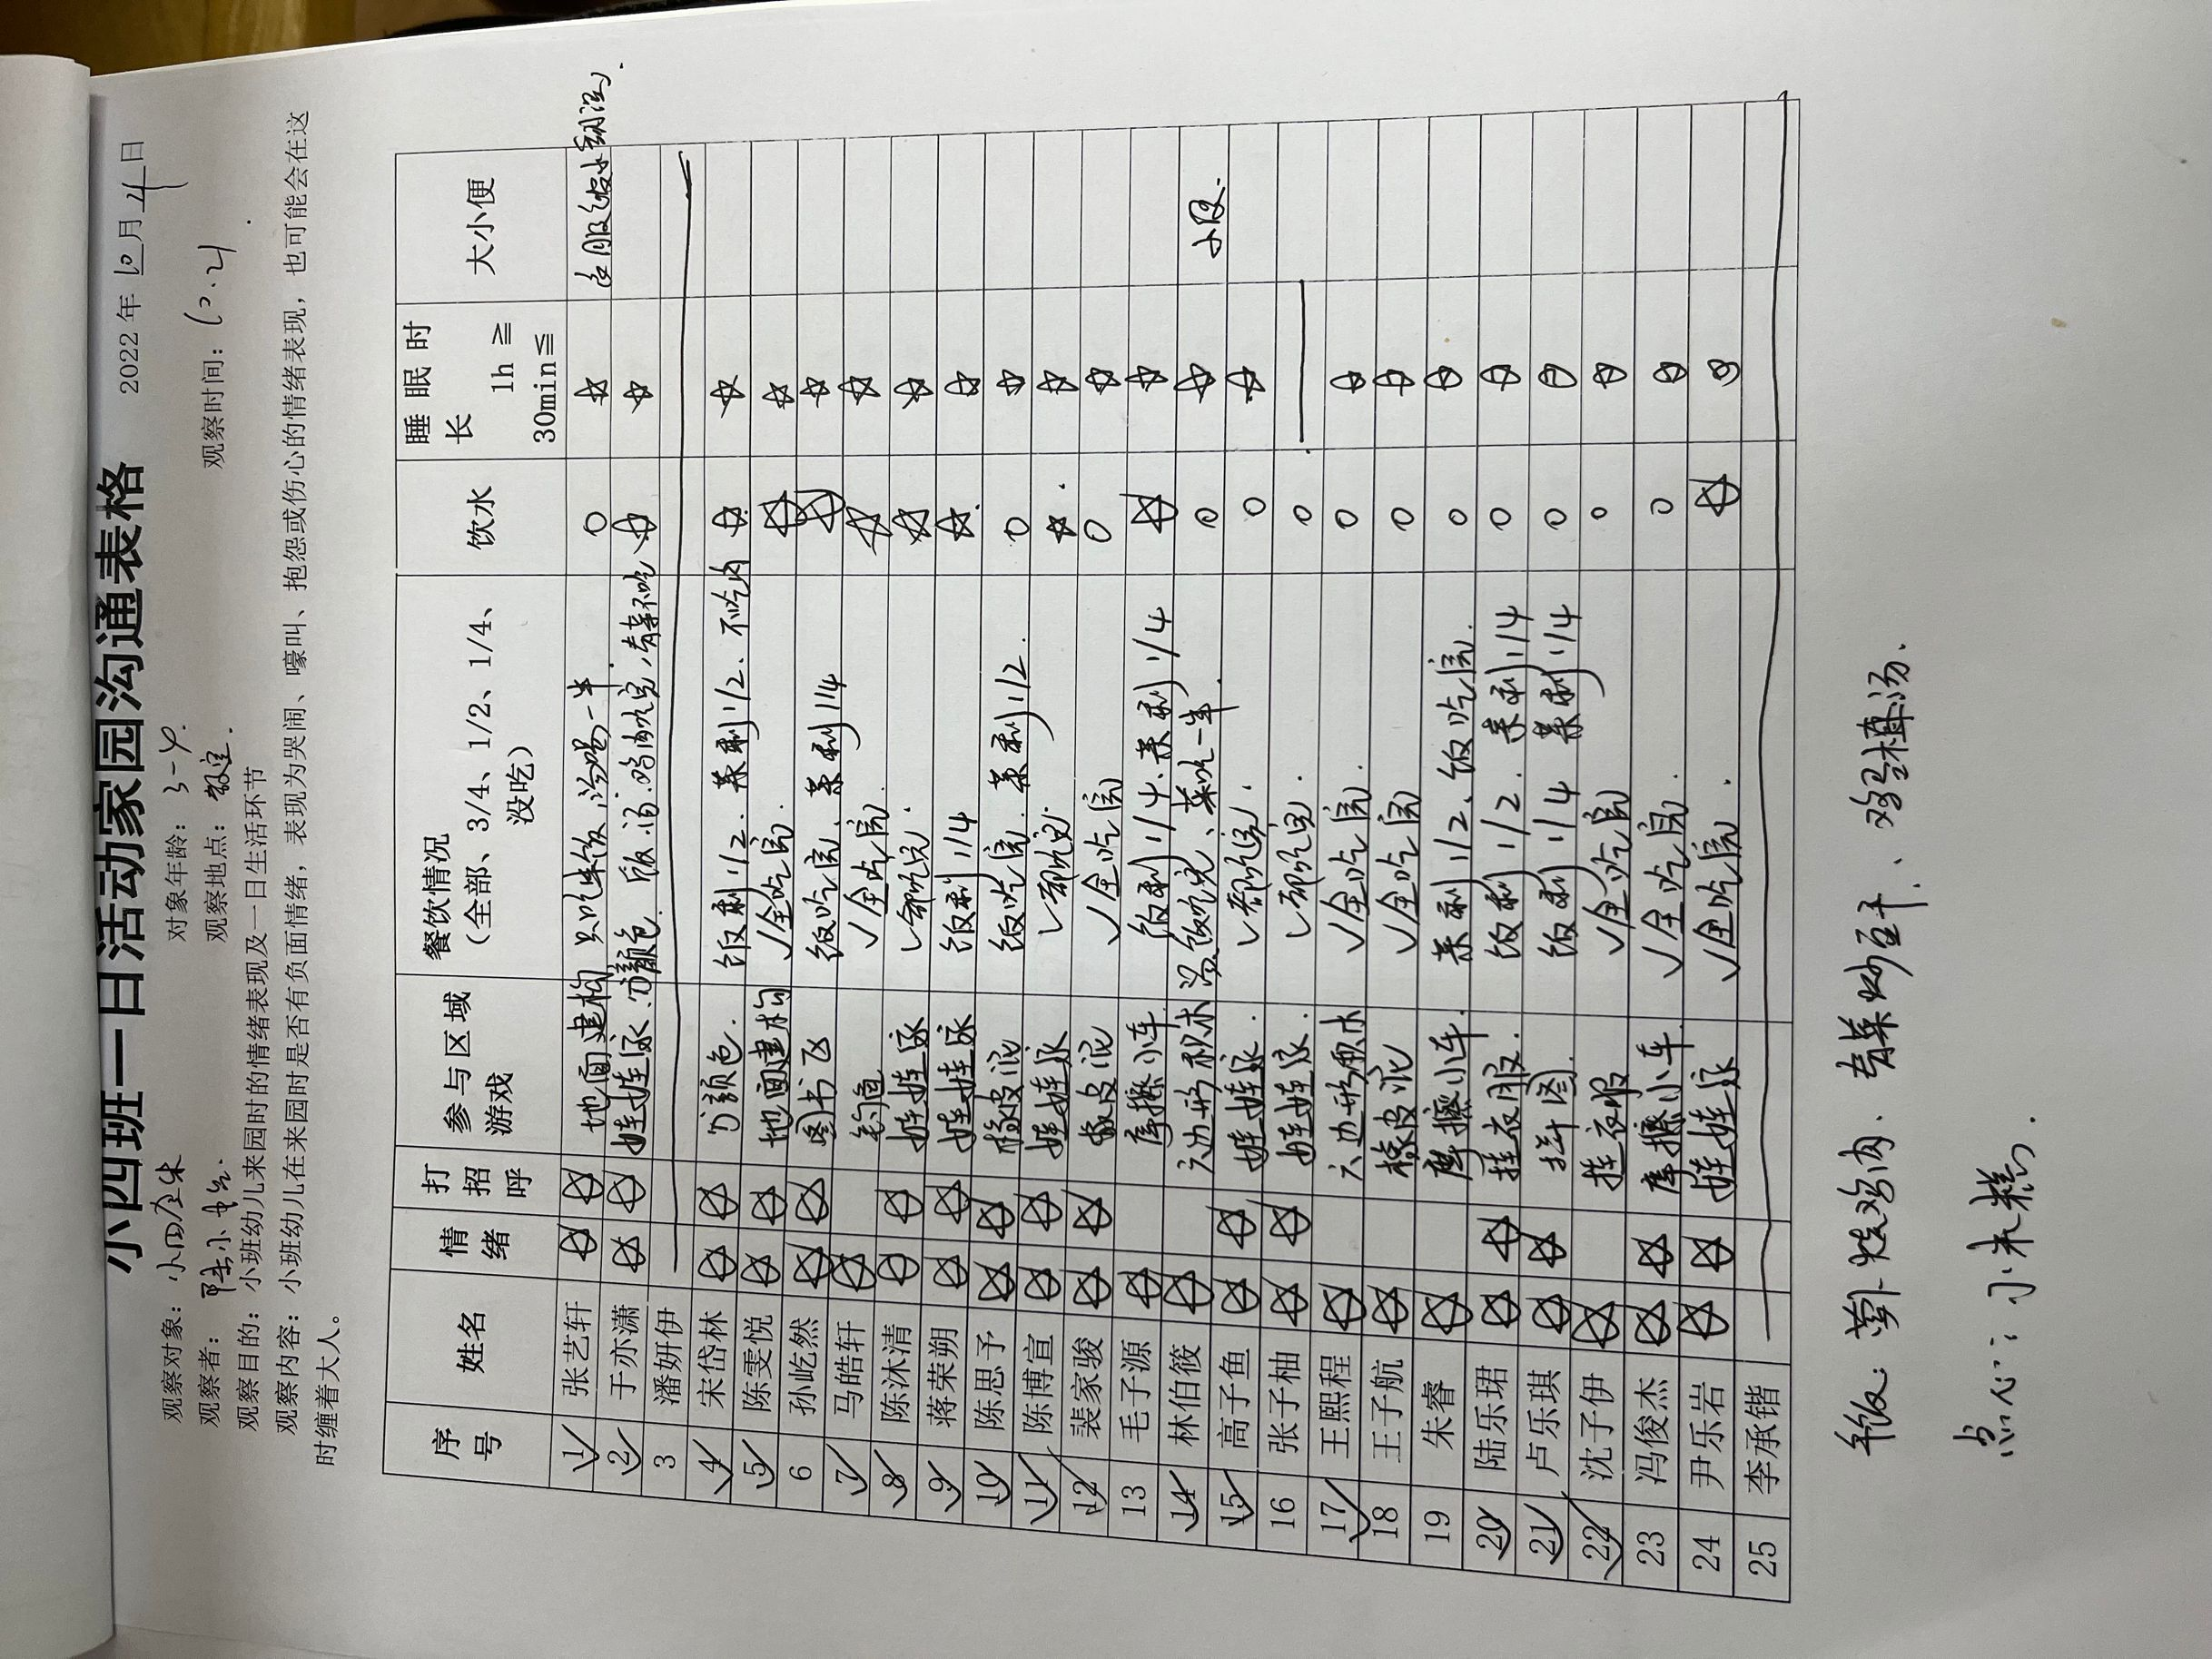 小四班一日活动家园沟通表格
2022 年 12 月 4 日
观察对象：小四全体 对象年龄：3-4
观察者： 观察地点：教室. 观察时间：12.4
观察目的：小班幼儿来园时的情绪表现及一日生活环节
观察内容：小班幼儿在来园时是否有负面情绪，表现为哭闹、嚎叫、抱怨或伤心的情绪表现，也可能会在这
时缠着大人。
序号 姓名 情绪 打招呼 参与区域游戏 餐饮情况（全部、3/4、1/2、1/4、没吃） 饮水 睡眠时长 1h ≧ 30min≦ 大小便
1 张艺轩 ☆ ☆ 地面建构 只吃半饭、汤喝一半. ○ ☆
2 于亦潇 ☆ ☆ 娃娃家. 分颜色. 饭.汤.鸡肉吃完, 青菜不吃 ☆ ☆
3 潘妍伊
4 宋岱林 ☆ ☆ 分颜色. 饭剩1/2. 菜剩1/2. 不吃肉 ☆ ☆
5 陈雯悦 ☆ ☆ 地面建构 ✓全吃完 ☆ ☆
6 孙屹然 ☆ ☆ 图书区 饭吃完. 菜剩1/4 ☆ ☆
7 马皓轩 ☆ 钓鱼 ✓全吃完. ☆ ☆
8 陈沐清 ☆ ☆ 娃娃家 ✓都吃完. ☆ ☆
9 蒋荣朔 ☆ ☆ 娃娃家 饭剩1/4 ☆ ☆
10 陈思予 ☆ ☆ 橡皮泥 饭吃完. 菜剩1/2. ○ ☆
11 陈博宣 ☆ ☆ 娃娃家 ✓都吃完. ☆ ☆
12 裴家骏 ☆ ☆ 橡皮泥 ✓全吃完 ○ ☆
13 毛子源 ☆ 摩擦小车 饭剩1/4. 菜剩1/4 ☆ ☆
14 林伯筱 ☆ 六边形积木 汤饭吃完、菜吃一半. ○ ☆
15 高子鱼 ☆ ☆ 娃娃家. ✓都吃完. ○ ☆
16 张子柚 ☆ ☆ 娃娃家. ✓都吃完. ○
17 王熙程 ☆ 六边形积木 ✓全吃完. ○ ☆
18 王子航 ☆ 橡皮泥 ✓全吃完 ○ ☆
19 朱睿 ☆ 摩擦小车. 菜剩1/2. 饭吃完. ○ ☆
20 陆乐珺 ☆ ☆ 挂衣服. 饭剩1/2. 菜剩1/4 ○ ☆
21 卢乐琪 ☆ ☆ 拼图. 饭剩1/4 菜剩1/4 ○ ☆
22 沈子伊 ☆ 挂衣服 ✓全吃完 ○ ☆
23 冯俊杰 ☆ ☆ 摩擦小车 ✓全吃完. ○ ☆
24 尹乐岩 ☆ ☆ 娃娃家 ✓全吃完. ☆ ☆
25 李承锴
午饭：萝卜烧鸡肉、青菜炒豆干、鸡蛋汤.
点心：小米糕.